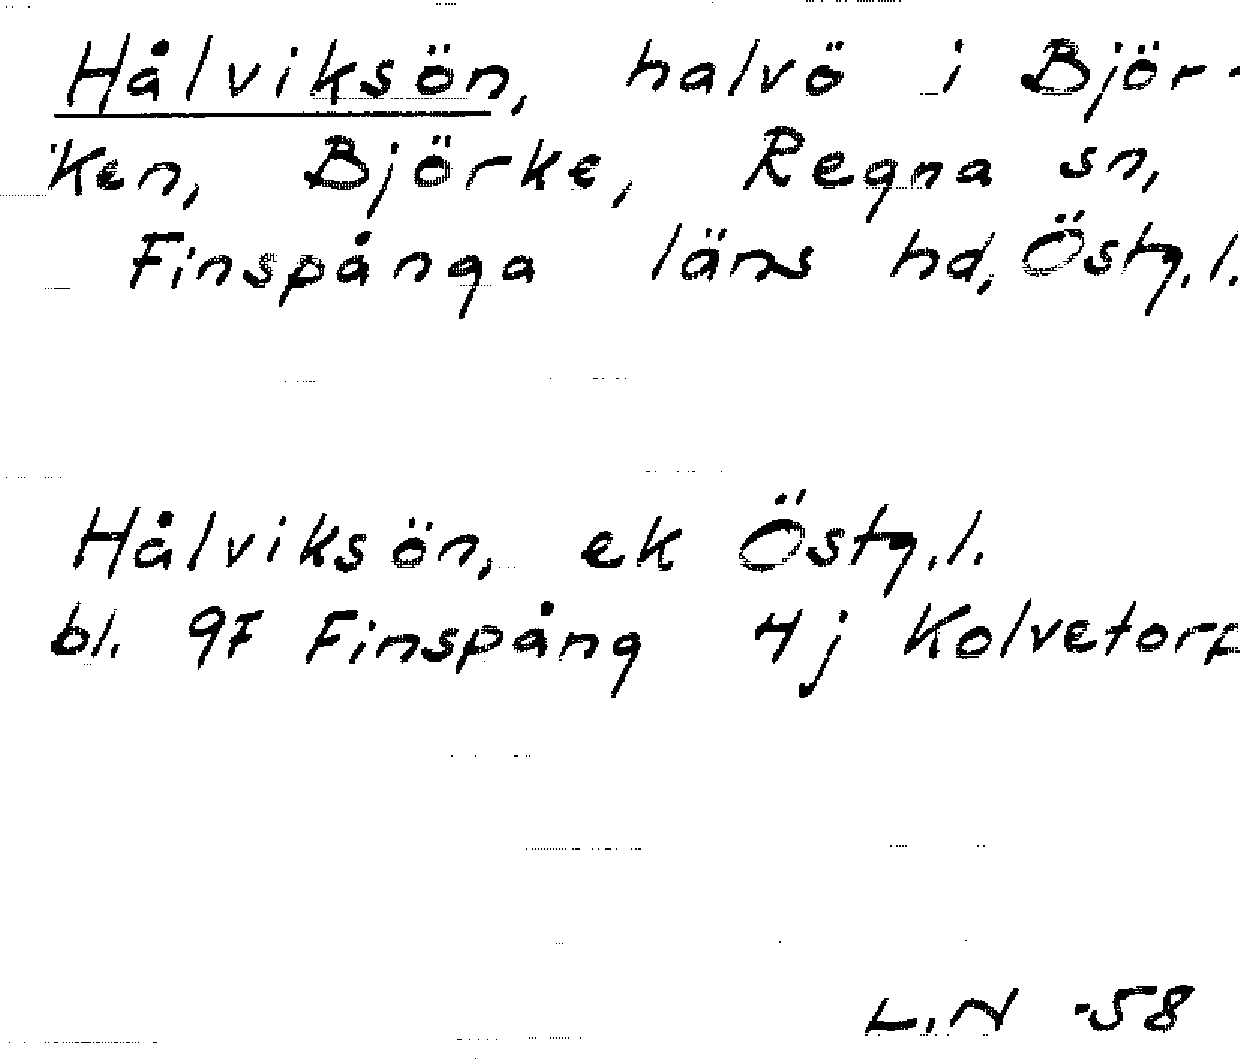 Hålviksön, halvö i Björ-
ken, Björke, Regna sn,
Finspånga läns hd, Östg.l.
Hålviksön, ek Östg.l.
bl. 9F Finspång 4j Kolvetorp
L.N -58